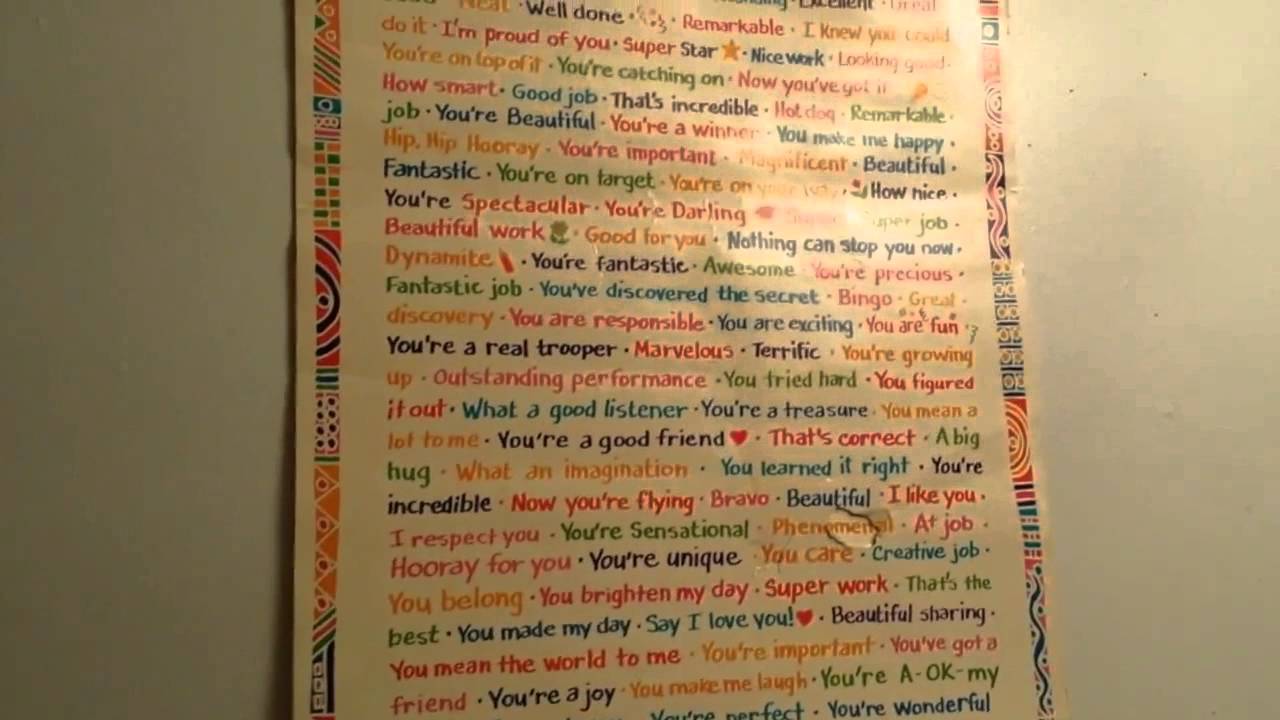 Neat · Well done · Excellent · Great
Remarkable · I knew you could
do it · I'm proud of you · Super Star · Nice work · Looking good ·
You're on top of it · You're catching on · Now you've got it
How smart · Good job · That's incredible · Hot dog · Remarkable ·
job · You're Beautiful · You're a winner · You make me happy ·
Hip, Hip Hooray · You're important · Magnificent · Beautiful ·
Fantastic · You're on target · You're on your way · How nice ·
You're Spectacular · You're Darling · Super job ·
Beautiful work · Good for you · Nothing can stop you now ·
Dynamite · You're fantastic · Awesome · You're precious ·
Fantastic job · You've discovered the secret · Bingo · Great ·
discovery · You are responsible · You are exciting · You are fun ·
You're a real trooper · Marvelous · Terrific · You're growing
up · Outstanding performance · You tried hard · You figured
it out · What a good listener · You're a treasure · You mean a
lot to me · You're a good friend · That's correct · A big
hug · What an imagination · You learned it right · You're
incredible · Now you're flying · Bravo · Beautiful · I like you ·
I respect you · You're Sensational · Phenomenal · At job ·
Hooray for you · You're unique · You care · Creative job ·
You belong · You brighten my day · Super work · That's the
best · You made my day · Say I love you! · Beautiful sharing ·
You mean the world to me · You're important · You've got a
friend · You're a joy · You make me laugh · You're A-OK-my
You're perfect · You're wonderful